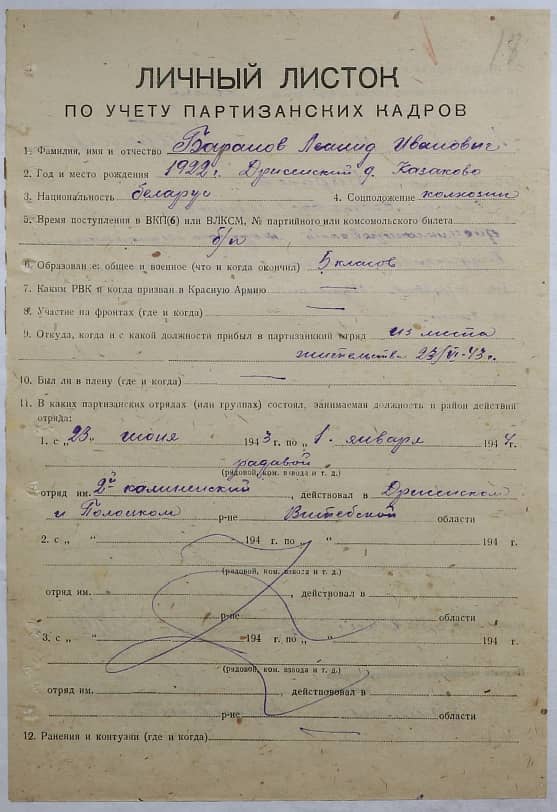 18
ЛИЧНЫЙ ЛИСТОК
ПО УЧЕТУ ПАРТИЗАНСКИХ КАДРОВ
1. Фамилия, имя и отчество Баранов Леонид Иванович
2. Год и место рождения 1922 г. Дрисенский д. Казаково
3. Национальность беларус 4. Соцположение колхозни
5. Время поступления в ВКП(б) или ВЛКСМ, № партийного или комсомольского билета
б/п
6. Образован е: общее и военное (что и когда окончил) 5 класов
7. Каким РВК и когда призван в Красную Армию —
8. Участие на фронтах (где и когда) —
9. Откуда, когда и с какой должности прибыл в партизанкий отряд из места
жительства 23/VI-43 г.
10. Был ли в плену (где и когда) —
11. В каких партизанских отрядах (или группах) состоял, занимаемая должность и район действия
отряда:
1. с „23„ июня 1943 г. по „1„ января 1944 г.
радавой
(рядовой, ком. взвода и т. д.)
отряд им. 2й калиненский, действовал в Дрисенском
и Полоцком р-не Витебской области
2. с „ “ 194 г. по „ “ 194 г.
(рядовой, ком. взвода и т. д.)
отряд им. , действовал в
р-не области
3. с „ “ 194 г. по „ “ 194 г.
(рядовой, ком. взвода и т. д.)
отряд им. , действовал в
р-не области
12. Ранения и контузии (где и когда) —